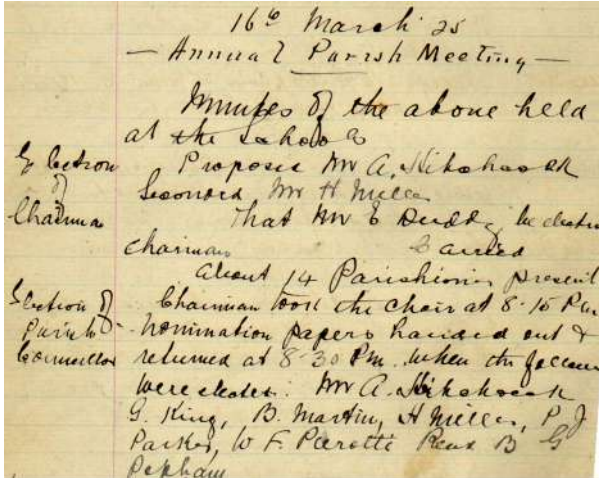 16th March 25
— Annual Parish Meeting —
Minutes of the above held
at the school
Election of Chairman
Proposer Mr A. Hitchcock
Seconder Mr H Miller
That Mr E Duddy be elected
chairman Carried
About 14 Parishioners present
Election of Parish Councillors
Chairman took the chair at 8-15 Pm
Nomination papers handed out &
returned at 8-30 Pm. when the follow
were elected: Mr A. Hitchcock
G. King, B. Martin, H Miller, P J
Parker, W F Pierotti B G
Popham